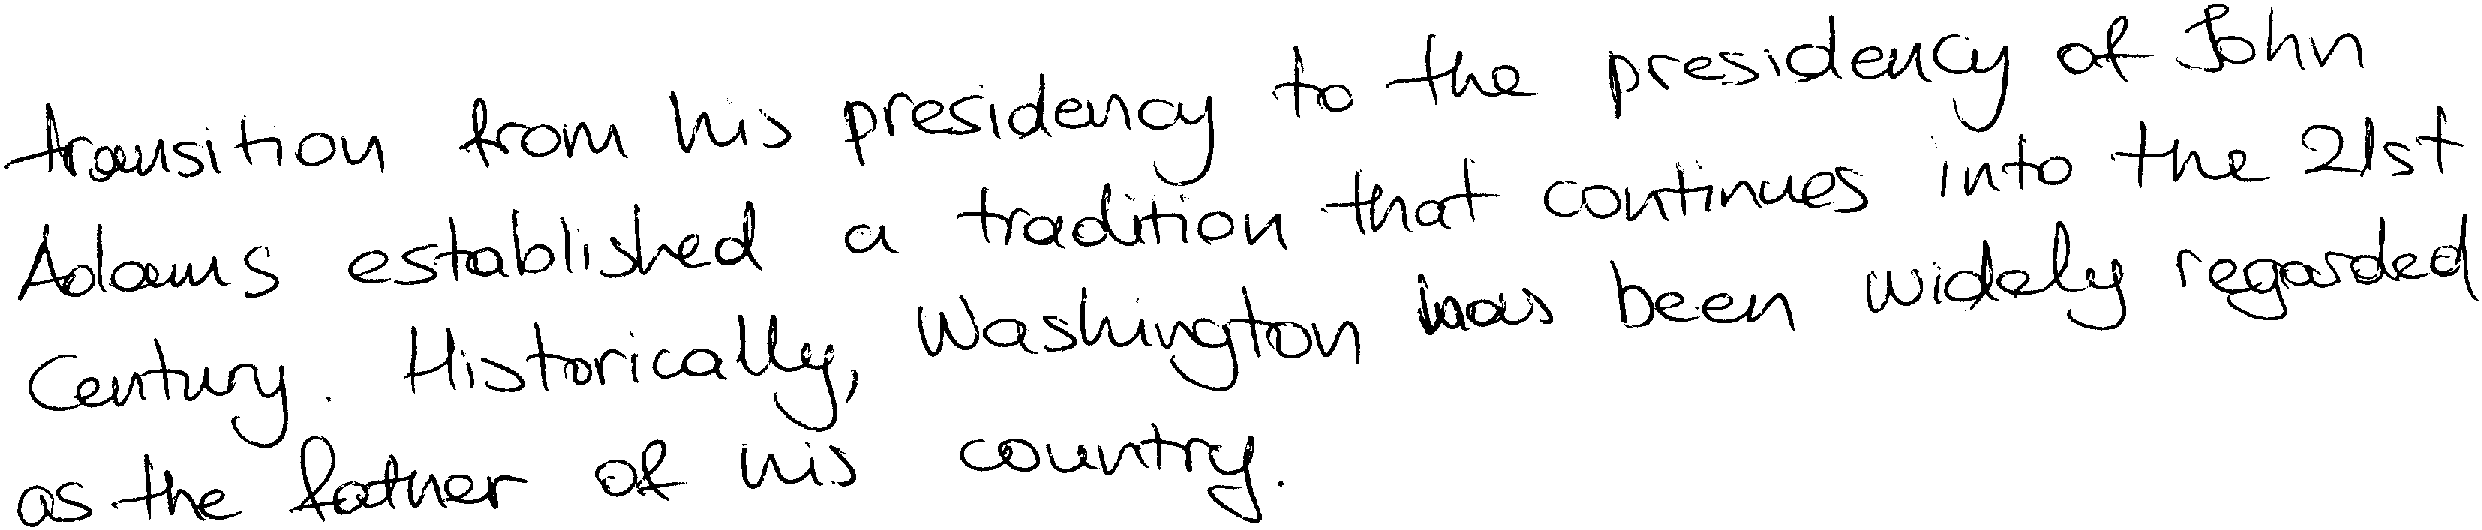 transition from his presidency to the presidency of John
Adams established a tradition that continues into the 21st
Century. Historically, Washington has been widely regarded
as the father of his country.